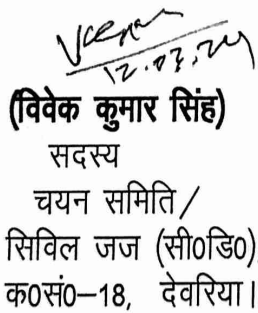 12.07.24
(विवेक कुमार सिंह)
सदस्य
चयन समिति /
सिविल जज (सी0डि0)
क0सं0–18, देवरिया।